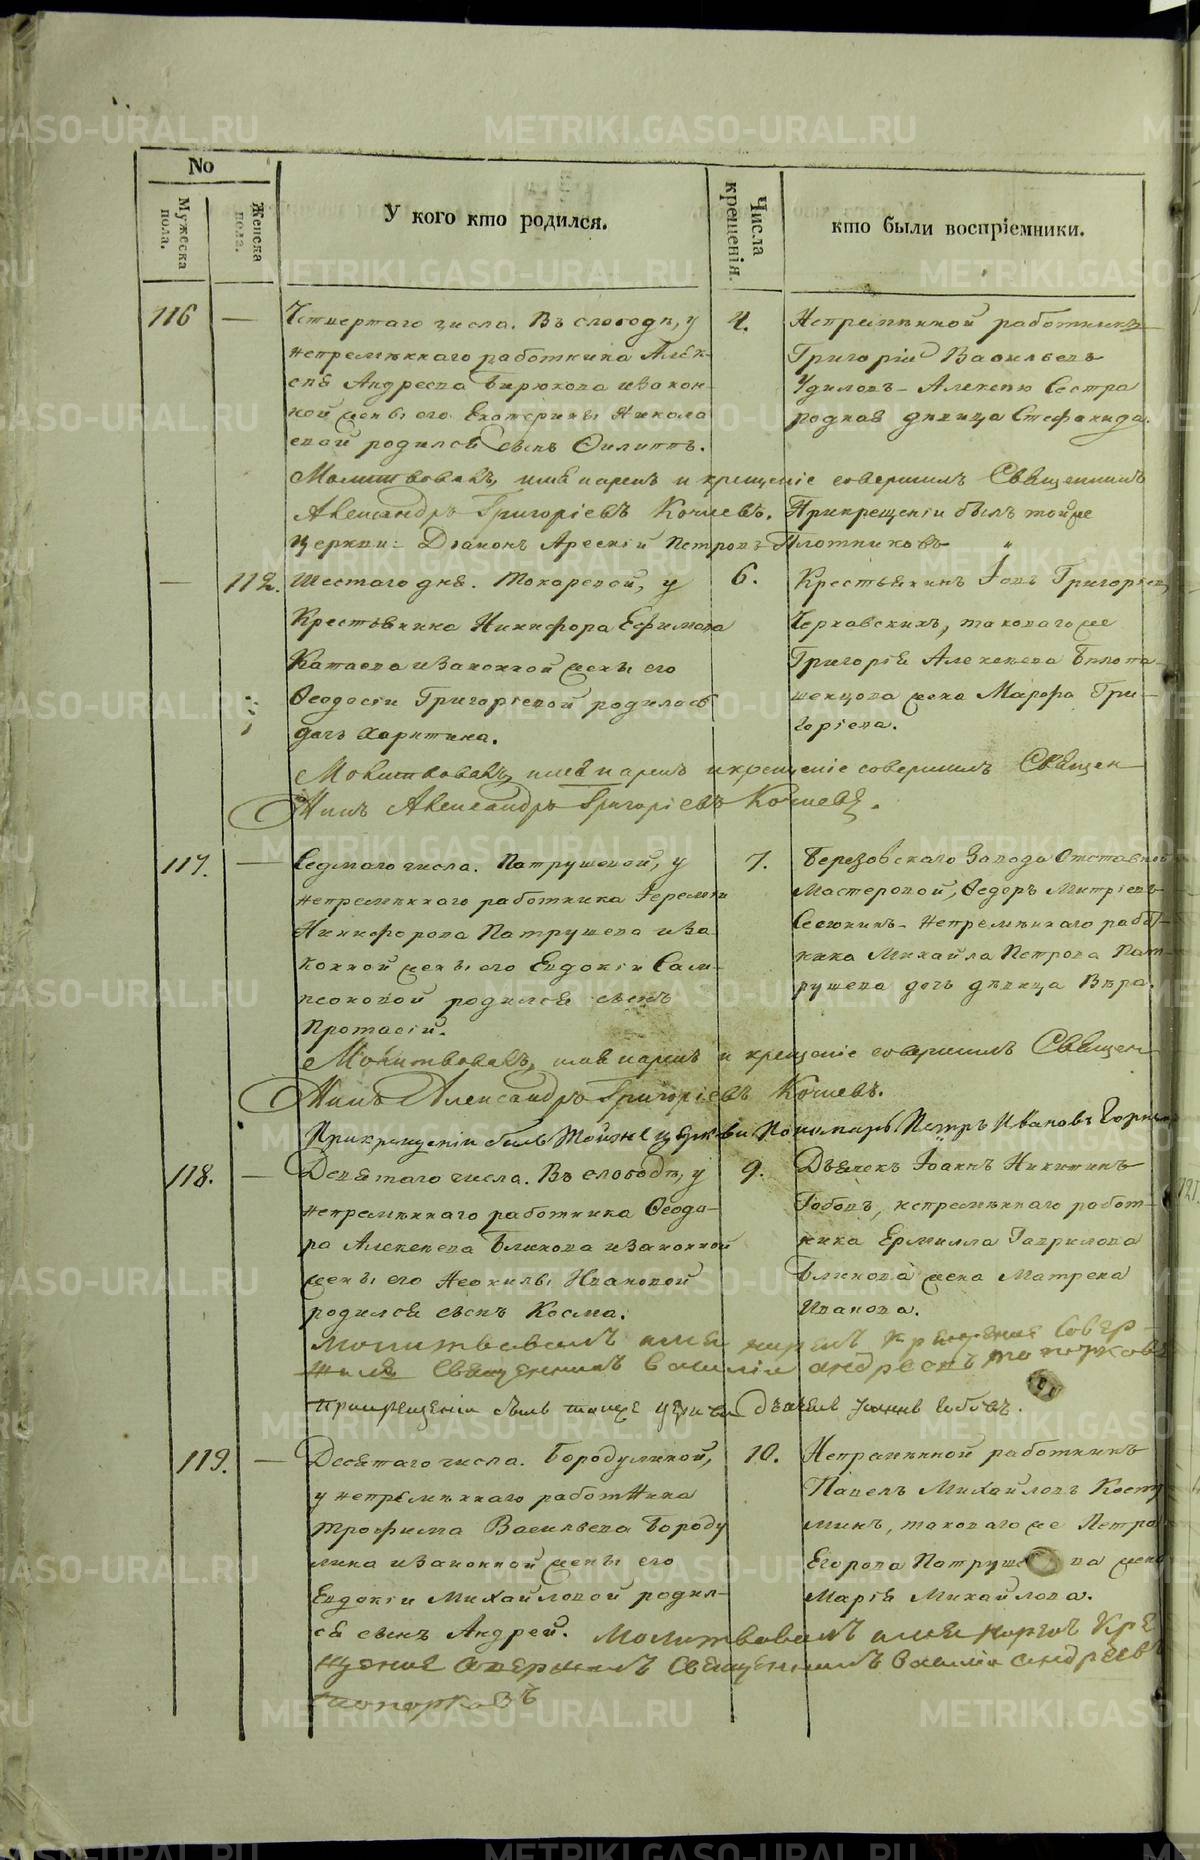 No
Мужеска пола.
Женска пола.
У кого кто родился.
Числа крещенія.
кто были воспріемники.
116 — Четвертаго числа. Въ слободѣ, у
непремѣннаго работника Алек-
сѣя Андреева Бирюкова и закон-
ной жены его Екатерины Никола
евой родился сынъ Филиппъ.
4.
Непремѣнной работникъ
Григорій Васильевъ
Удиловъ – Алексѣю Сестра
родная дѣвица Стефанида.
Молитвовалъ, имя нарекъ и крещеніе совершилъ Священникъ
Александръ Григоріевъ Кочневъ. При крещеніи былъ той же
Церкви: Діаконъ Арсеній Петровъ Плотниковъ
— 112. Шестаго дня. Токаревой, у
Крестьянина Никифора Ефимова
Катаева и законной жены его
Ѳеодосіи Григоріевой родилась
дочь Харитина.
6.
Крестьянинъ Іовъ Григорьев
Черкавскихъ, таковаго же
Григорія Алексѣева Бѣлопа-
шенцова жена Марфа Гри-
горіева.
Молитвовалъ, имя нарекъ и крещеніе совершилъ Священ
никъ Александръ Григоріевъ Кочневъ.
117. — Седмаго числа. Патрушевой, у
непремѣннаго работника Іеремія
Никифорова Патрушева и за
конной жены его Евдокіи Сам-
псоновой родился сынъ
Протасій.
7.
Березовскаго Завода Отставной
Мастеровой, Ѳедоръ Митріевъ
Сесюнинъ – Непремѣннаго работ-
ника Михайла Петрова Пат-
рушева дочь дѣвица Вѣра.
Молитвовалъ, имя нарекъ и крещеніе совершилъ Священ
никъ Александръ Григоріевъ Кочневъ.
При крещеніи былъ той же церкви Пономарь Петръ Ивановъ
118. — Девятаго числа. Въ слободѣ, у
непремѣннаго работника Ѳеодо-
ра Алексѣева Блинова и законной
жены его Неонилы Ивановой
родился сынъ Косма.
9.
Дьячекъ Іоаннъ Никитинъ
непремѣннаго работ-
ника Ермилла Гаврилова
Блинова жена Матрена
Иванова.
Молитвовалъ имя нарекъ крещеніе совер-
шилъ Священникъ Василій Андреевъ Топорковъ
При крещеніи былъ тойже церкви дьячекъ Іоаннъ
119. — Десятаго числа. Бородулиной,
у непремѣннаго работника
Трофима Васильева Бороду
лина и законной жены его
Евдокіи Михайловой родил-
ся сынъ Андрей.
10.
Непремѣнной работникъ
Павелъ Михайловъ Косту
минъ, таковаго же Петра
Егорова Патрушева жена
Марія Михайлова.
Молитвовалъ имя нарекъ кре
щеніе совершилъ Священникъ Василій Андреевъ
Топорковъ